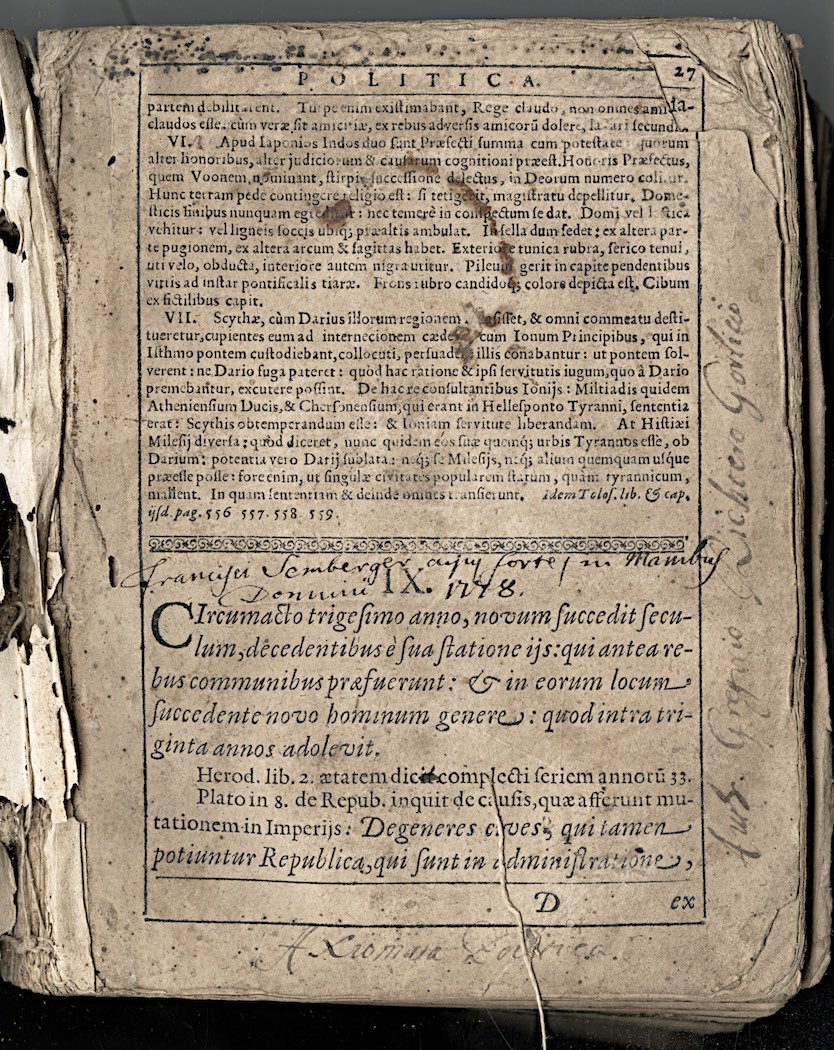 POLITICA.
27
partem debilitarent. Turpe enim existimabant, Rege claudo, non omnes
claudos esse. cùm veræ sit amicitiæ, ex rebus adversis amicorū dolere, secundis.
VI. Apud Iaponios Indos duo sunt Præfecti summa cum potestate: quorum
alter honoribus, alter judiciorum & causarum cognitioni præest. Honoris Præfectus,
quem Voonem nominant, stirpis successione delectus, in Deorum numero colitur.
Hunc terram pede contingere religio est: si tetigerit, magistratu depellitur. Dome-
sticis finibus nunquam egreditur: nec temerè in conspectum se dat. Domi vel lectica
vehitur: vel ligneis soccis ubiq; præaltis ambulat. In sella dum sedet: ex altera par-
te pugionem, ex altera arcum & sagittas habet. Exteriore tunica rubra, serico tenui,
uti velo, obducta, interiore autem nigra utitur. Pileum gerit in capite pendentibus
vittis ad instar pontificalis tiaræ. Frons rubro candidoq; colore depicta est. Cibum
ex fictilibus capit.
VII. Scythæ, cùm Darius illorum regionem & omni commeatu desti-
tueretur, cupientes eum ad internecionem cædere, cum Ionum Principibus, qui in
Isthmo pontem custodiebant, collocuti, persuadere illis conabantur: ut pontem sol-
verent: ne Dario fuga pateret: quòd hac ratione & ipsi servitutis iugum, quo à Dario
premebantur, excutere possint. De hac re consultantibus Ionijs: Miltiadis quidem
Atheniensium Ducis, & Chersonensium, qui erant in Hellesponto Tyranni, sententia
erat: Scythis obtemperandum esse: & Ioniam servitute liberandam. At Histiæi
Milesij diversa: quòd diceret, nunc quidem eos suæ quemq; urbis Tyrannos esse, ob
Darium: potentia vero Darij sublata: neq; se Milesijs, neq; alium quemquam usque
præesse posse: fore enim, ut singulæ civitates popularem statum, quàm tyrannicum,
mallent. In quam sententiam & deinde omnes transierunt. idem Tolos. lib. & cap.
ijsd. pag. 556 557. 558. 559.
Francisci Semberger in Manibus
Domini 1778.
IX.
CIrcumacto trigesimo anno, novum succedit secu-
lum, decedentibus è sua statione ijs: qui antea re-
bus communibus præfuerunt: & in eorum locum
succedente novo hominum genere: quod intra tri-
ginta annos adolevit.
Herod. lib. 2. ætatem dicit complecti seriem annorū 33.
Plato in 8. de Repub. inquit de causis, quæ afferunt mu-
tationem in Imperijs: Degeneres cives, qui tamen
potiuntur Republica, qui sunt in administratione,
D
ex
Axiomata Politica.